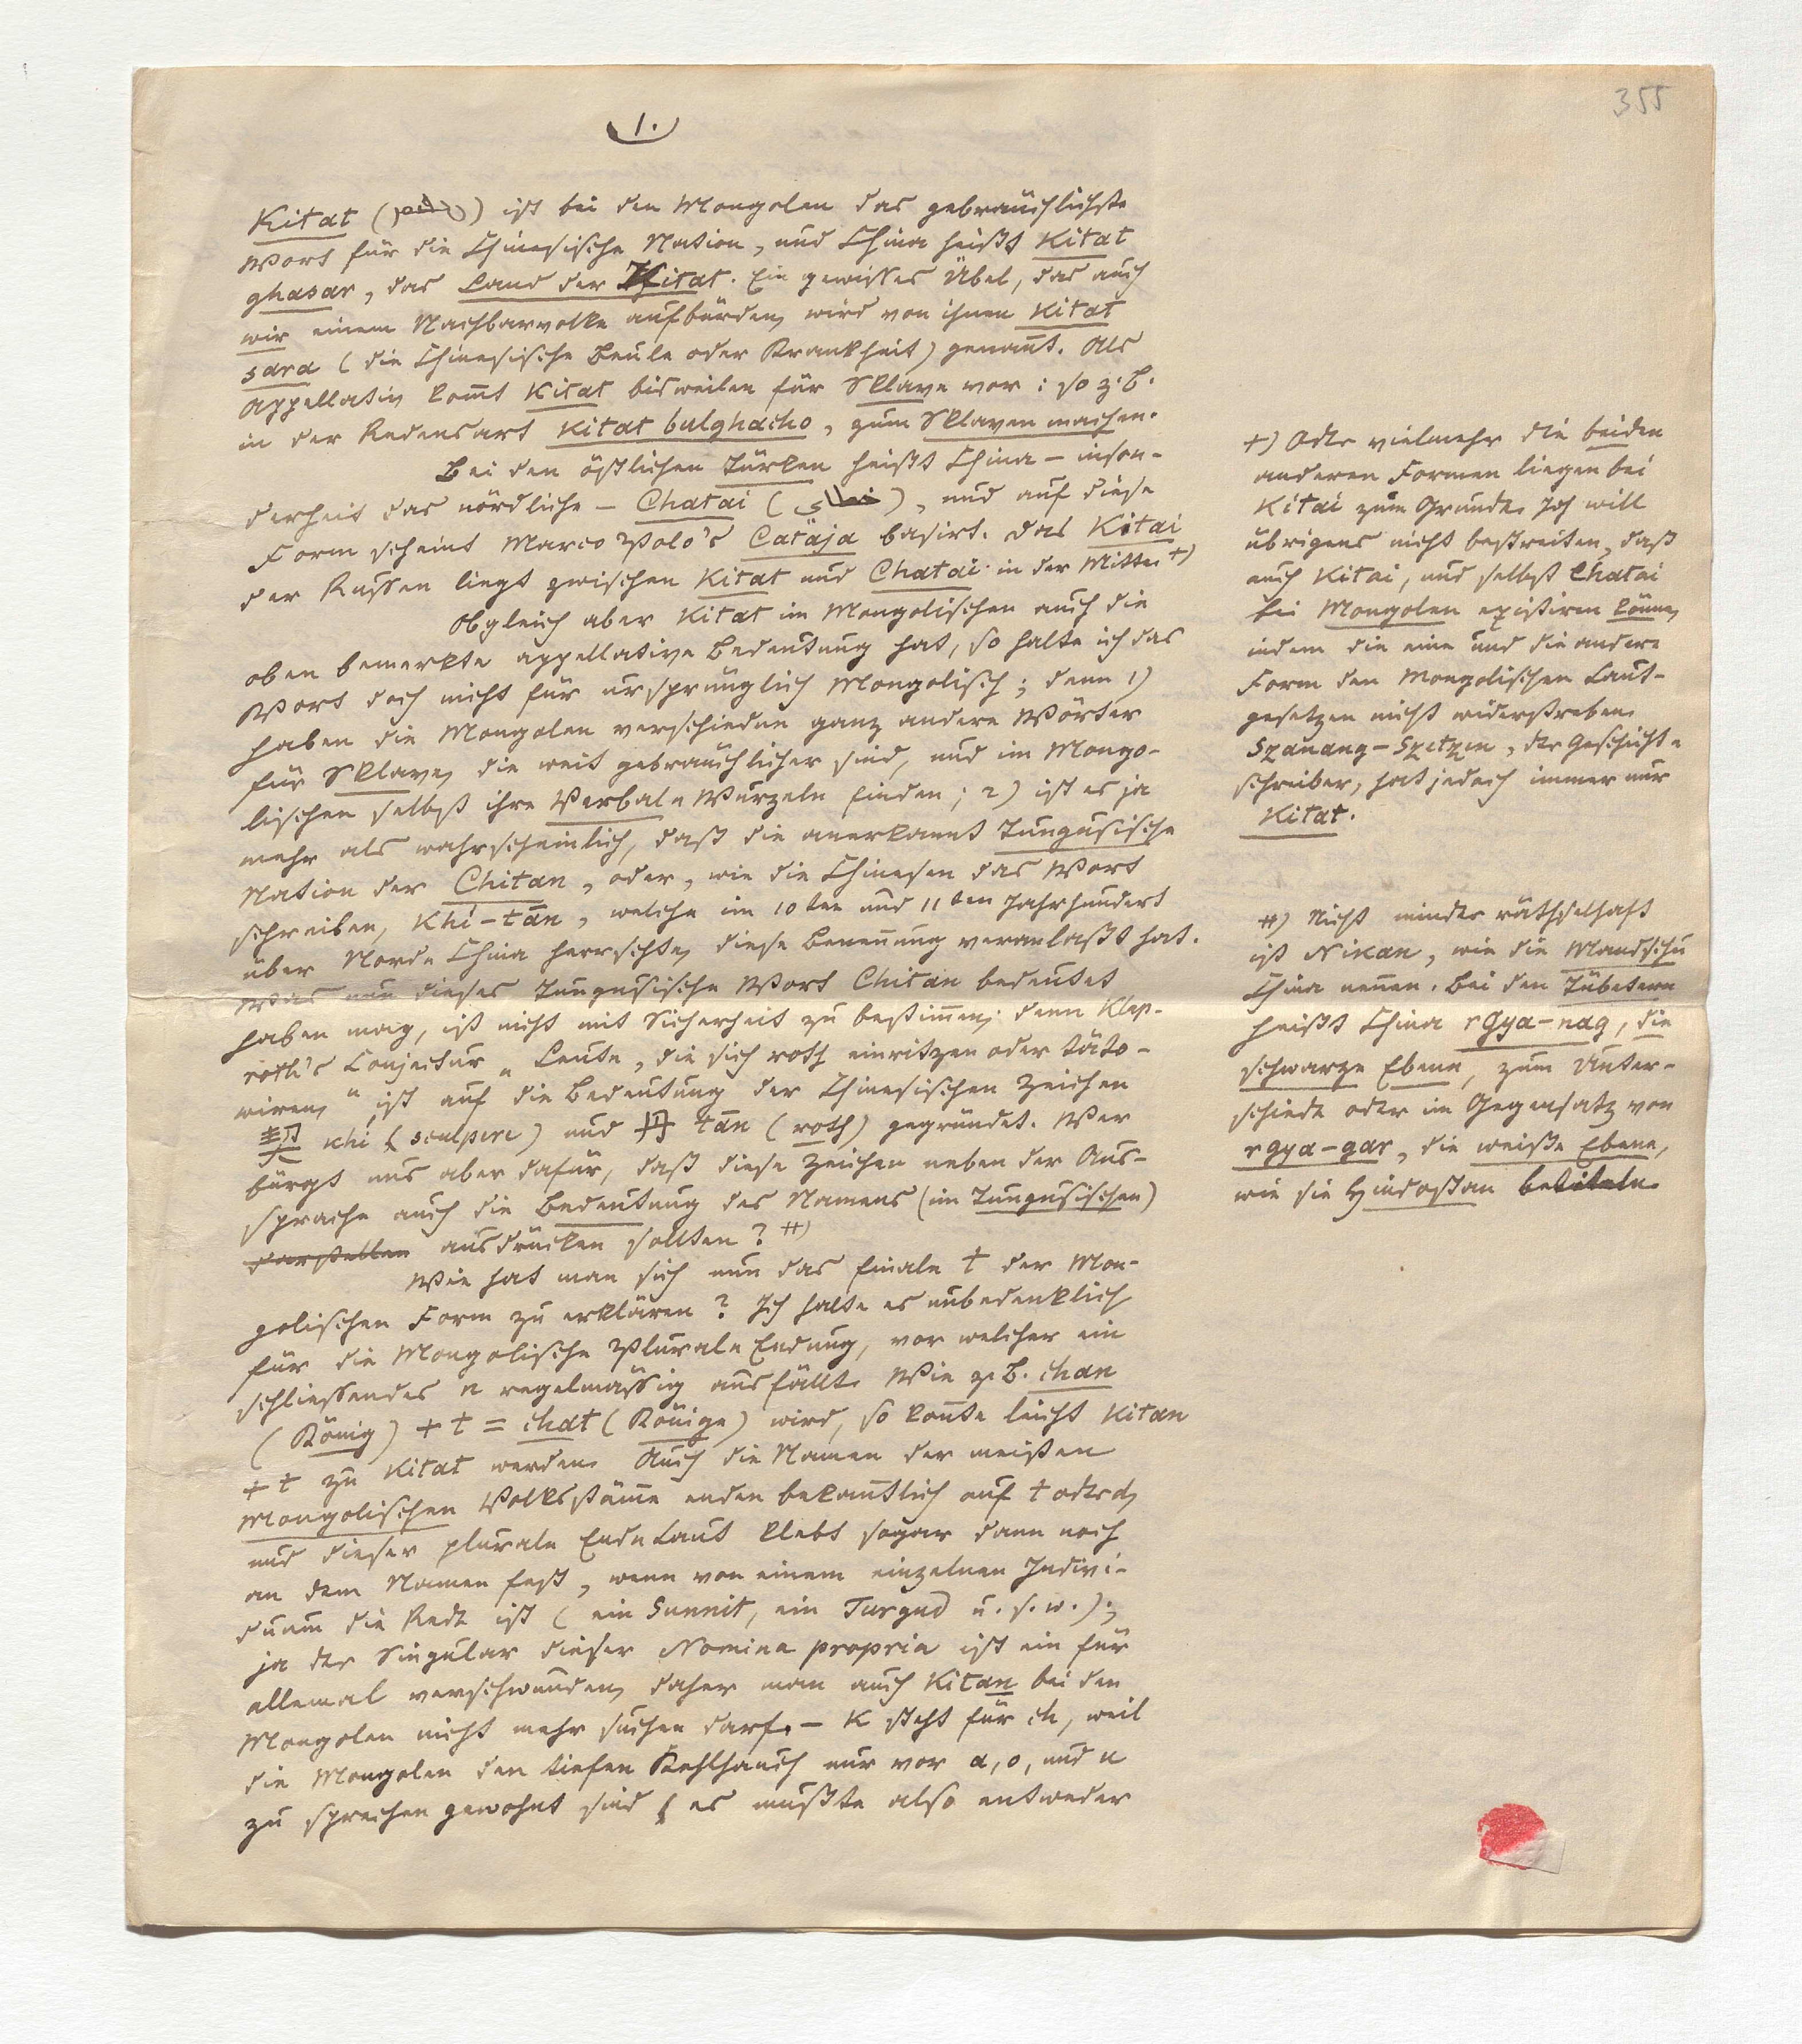 355
1.
Kitat () ist bei den Mongolen das gebräuchlichste
Wort für die Chinesische Nation, und China heißt Kitat
ghasar, das Land der Kitat. Ein gewisses Übel, das auch
wir einem Nachbarvolke aufbürden, wird von ihnen Kitat
sara (die Chinesische Beule oder Krankheit) genañt. Als
Appellativ kom̃t Kitat bisweilen für Sklave vor: so z. B.
in der Redensart Kitat bulghacho, zum Sklaven machen.
Bei den östlichen Türken heißt China – inson-
derheit das nördliche – Chatai (خطاى), und auf diese
Form scheint Marco Polo's Cataja basirt. Das Kitai
der Russen liegt zwischen Kitat und Chatai in der Mitte. +)
Obgleich aber Kitat im Mongolischen auch die
oben bemerkte appellative Bedeutung hat, so halte ich das
Wort doch nicht für ursprünglich Mongolisch; denn 1)
haben die Mongolen verschiedne ganz andere Wörter
für Sklave, die weit gebräuchlicher sind, und im Mongo-
lischen selbst ihre Verbal-Wurzeln finden; 2) ist es ja
mehr als wahrscheinlich, daß die anerkannt Tungusische
Nation der Chitan, oder, wie die Chinesen das Wort
schreiben, Khí-tān, welche im 10ten und 11ten Jahrhundert
über Nord-China herrschte, diese Beneñung veranlaßt hat.
Was nun dieses Tungusische Wort Chitan bedeutet
haben mag, ist nicht mit Sicherheit zu bestim̃en; denn Klap-
roth's Conjectur „Leute, die sich roth einritzen oder täto-
wiren,“ ist auf die Bedeutung der Chinesischen Zeichen
契 khí (sculpere) und 丹 tān (roth) gegründet. Wer
bürgt uns aber dafür, daß diese Zeichen neben der Aus-
sprache auch die Bedeutung des Namens (im Tungusischen)
darstellen ausdrücken sollten? ++)
Wie hat man sich nun das finale t der Mon-
golischen Form zu erklären? Ich halte es unbedenklich
für die Mongolische Plural-Endung, vor welcher ein
schliessendes n regelmässig ausfällt. Wie z. B. chan
(König) + t = chat (Könige) wird, so koñte leicht Kitan
+ t zu Kitat werden. Auch die Namen der meisten
Mongolischen Volksstäm̃e enden bekañtlich auf t oder d,
und dieser plurale End-Laut klebt sogar dann noch
an dem Namen fest, wenn von einem einzelnen Indivi-
duum die Rede ist (ein Sunnit, ein Turgud u. s. w.);
ja der Singular dieser Nomina propria ist ein für
allemal verschwunden, daher man auch Kitan bei den
Mongolen nicht mehr suchen darf. – K steht für ch, weil
die Mongolen den tiefen Kehlhauch nur vor a, o, und u
zu sprechen gewohnt sind; es mußte also entweder
+) Oder vielmehr die beiden
anderen Formen liegen bei
Kitai zum Grunde. Ich will
übrigens nicht bestreiten, daß
auch Kitai, und selbst Chatai
bei Mongolen existiren köñe,
indem die eine und die andere
Form den Mongolischen Laut-
gesetzen nicht widerstreben.
Szanang-Szetzen, der Geschicht-
schreiber, hat jedoch immer nur
Kitat.
++) Nicht minder räthselhaft
ist Nikan, wie die Mandschu
China neñen. Bei den Tübetern
heißt China rGya-nag, die
schwarze Ebene, zum Unter-
schiede oder im Gegensatz von
rGya-gar, die weiße Ebene,
wie sie Hindostan betiteln.